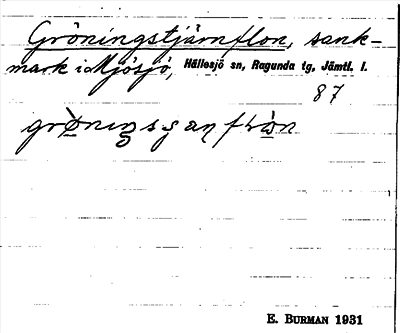 Gröningstjärnflon, sank-
mark i Mjösjö, Hällesjö sn, Ragunda tg, Jämtl. l.
87
E. BURMAN 1931